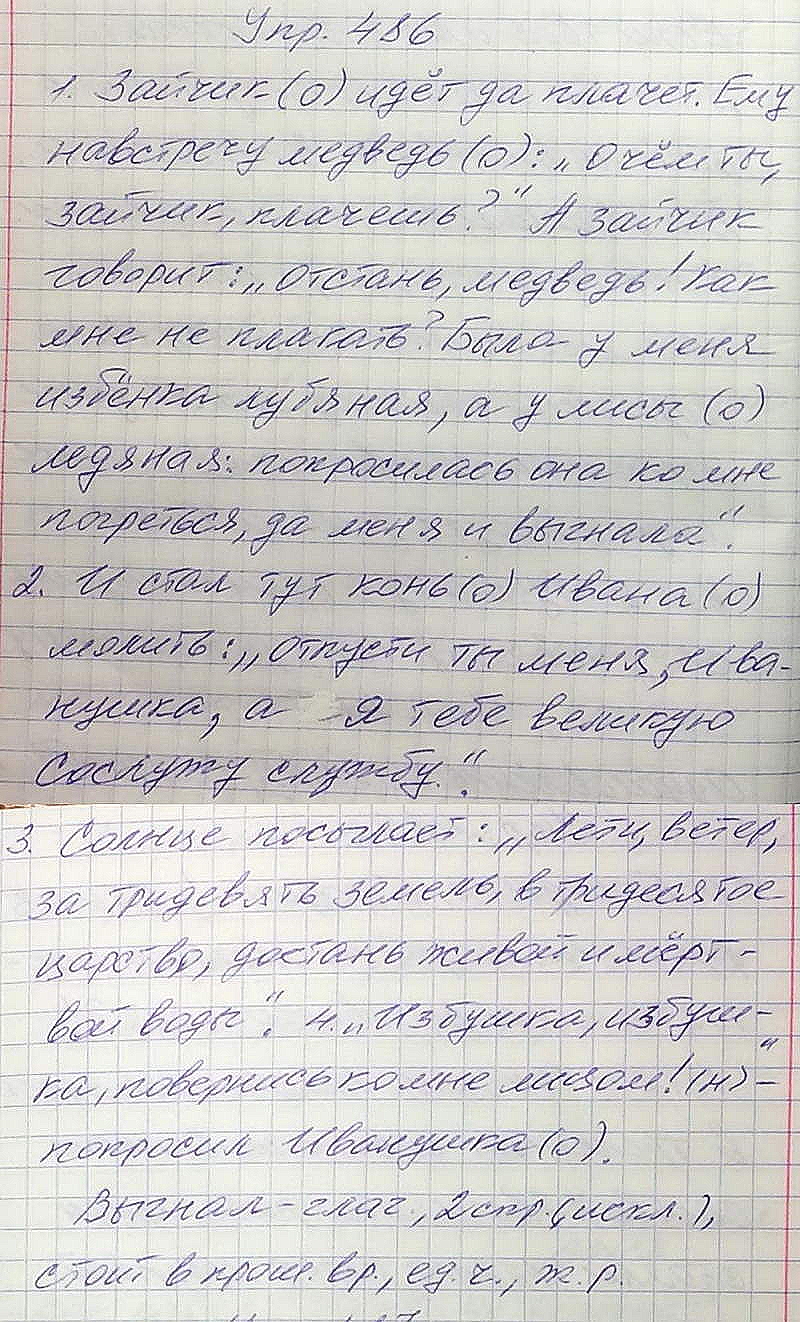 Упр. 486
1. Зайчик (о) идёт да плачет. Ему
навстречу медведь (о): „О чём ты,
зайчик, плачешь?" А зайчик
говорит: „Отстань, медведь! Как
мне не плакать? Была у меня
избёнка лубяная, а у лисы (о)
ледяная: попросилась она ко мне
погреться, да меня и выгнала".
2. И стал тут конь (о) Ивана (о)
молить: „Отпусти ты меня, Ива-
нушка, а я тебе великую
сослужу службу.".
3. Солнце посылает: „Лети, ветер,
за тридевять земель, в тридесятое
царство, достань живой и мёрт-
вой воды". 4. „Избушка, избуш-
ка, повернись ко мне лицом! (н)" -
попросил Иванушка (о).
Выгнал - глаг., 2 спр. (искл.),
стоит в прош. вр., ед. ч., ж. р.